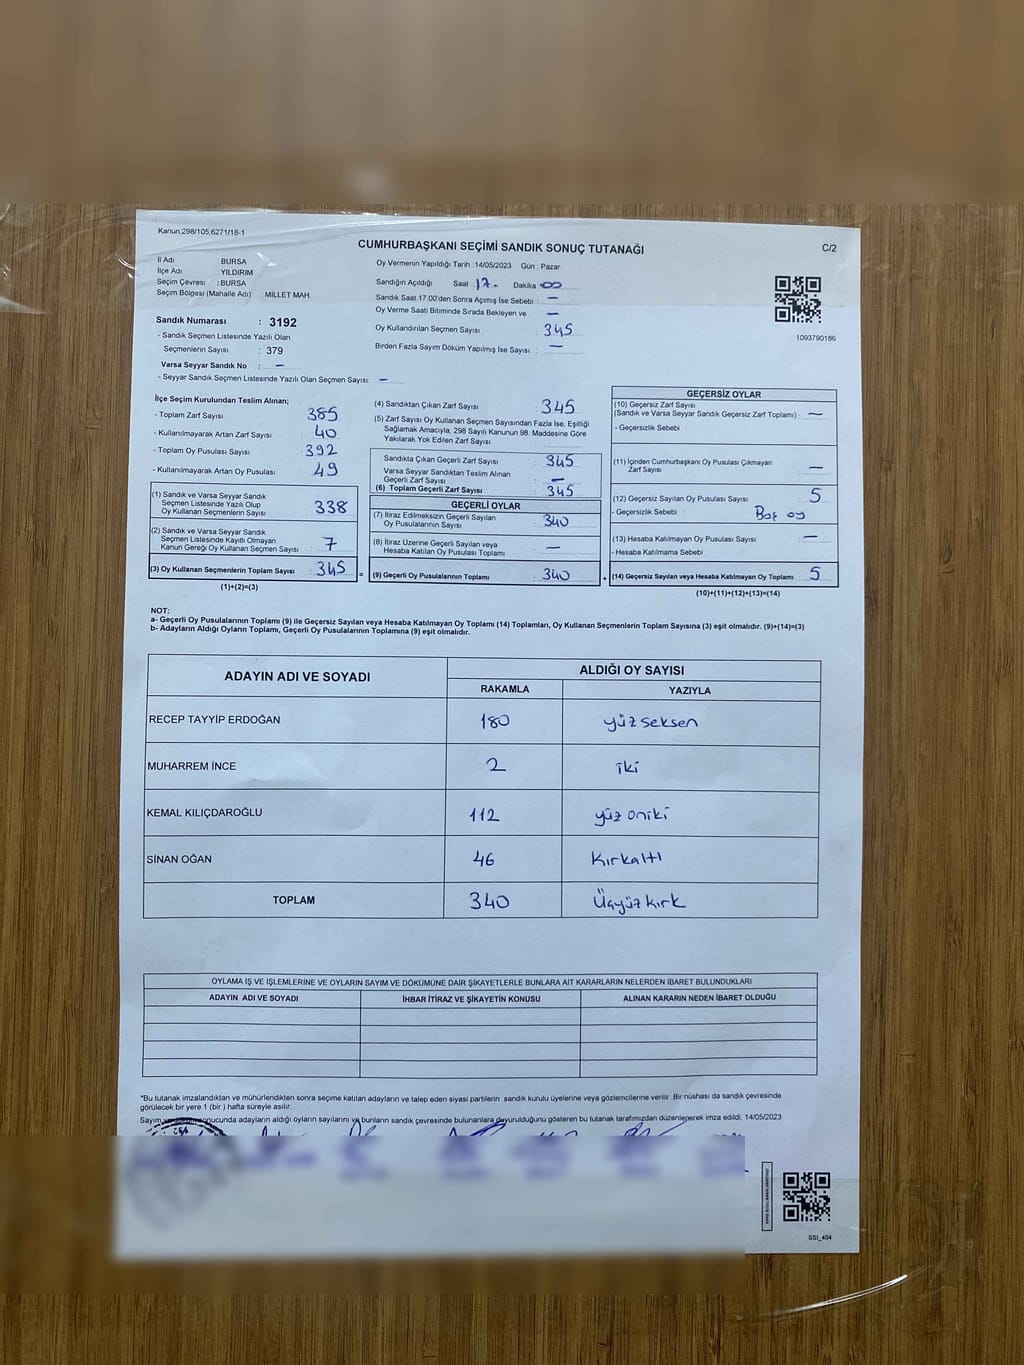 Kanun,298/105,6271/18-1
CUMHURBAŞKANI SEÇİMİ SANDIK SONUÇ TUTANAĞI
C/2
İl Adı : BURSA
İlçe Adı : YILDIRIM
Seçim Çevresi : BURSA
Seçim Bölgesi (Mahalle Adı) : MİLLET MAH.
Oy Vermenin Yapıldığı Tarih :14/05/2023 Gün : Pazar
Sandığın Açıldığı Saat 17. Dakika 00
Sandık Saat 17.00'den Sonra Açımış İse Sebebi : —
Oy Verme Saati Bitiminde Sırada Bekleyen ve —
Oy Kullandırılan Seçmen Sayısı : 345
Birden Fazla Sayım Döküm Yapılmış İse Sayısı : —
1093790186
Sandık Numarası : 3192
- Sandık Seçmen Listesinde Yazılı Olan
Seçmenlerin Sayısı : 379
Varsa Seyyar Sandık No : —
- Seyyar Sandık Seçmen Listesinde Yazılı Olan Seçmen Sayısı: —
İlçe Seçim Kurulundan Teslim Alınan;
- Toplam Zarf Sayısı 385
- Kullanılmayarak Artan Zarf Sayısı 40
- Toplam Oy Pusulası Sayısı 392
- Kullanılmayarak Artan Oy Pusulası 49
(1) Sandık ve Varsa Seyyar Sandık
Seçmen Listesinde Yazılı Olup
Oy Kullanan Seçmenlerin Sayısı 338
(2) Sandık ve Varsa Seyyar Sandık
Seçmen Listesinde Kayıtlı Olmayan
Kanun Gereği Oy Kullanan Seçmen Sayısı 7
(3) Oy Kullanan Seçmenlerin Toplam Sayısı 345
(1)+(2)=(3)
(4) Sandıktan Çıkan Zarf Sayısı 345
(5) Zarf Sayısı Oy Kullanan Seçmen Sayısından Fazla İse, Eşitliği
Sağlamak Amacıyla, 298 Sayılı Kanunun 98. Maddesine Göre
Yakılarak Yok Edilen Zarf Sayısı
Sandıkta Çıkan Geçerli Zarf Sayısı 345
Varsa Seyyar Sandıktan Teslim Alınan
Geçerli Zarf Sayısı —
(6) Toplam Geçerli Zarf Sayısı 345
GEÇERLİ OYLAR
(7) İtiraz Edilmeksizin Geçerli Sayılan
Oy Pusulalarının Sayısı 340
(8) İtiraz Üzerine Geçerli Sayılan veya
Hesaba Katılan Oy Pusulası Toplamı —
= (9) Geçerli Oy Pusulalarının Toplamı 340
GEÇERSİZ OYLAR
(10) Geçersiz Zarf Sayısı
(Sandık ve Varsa Seyyar Sandık Geçersiz Zarf Toplamı) : —
- Geçersizlik Sebebi :
(11) İçinden Cumhurbaşkanı Oy Pusulası Çıkmayan
Zarf Sayısı —
(12) Geçersiz Sayılan Oy Pusulası Sayısı 5
- Geçersizlik Sebebi : Boş oy
(13) Hesaba Katılmayan Oy Pusulası Sayısı —
- Hesaba Katılmama Sebebi :
+ (14) Geçersiz Sayılan veya Hesaba Katılmayan Oy Toplamı 5
(10)+(11)+(12)+(13)=(14)
NOT:
a- Geçerli Oy Pusulalarının Toplamı (9) ile Geçersiz Sayılan veya Hesaba Katılmayan Oy Toplamı (14) Toplamları, Oy Kullanan Seçmenlerin Toplam Sayısına (3) eşit olmalıdır. (9)+(14)=(3)
b- Adayların Aldığı Oyların Toplamı, Geçerli Oy Pusulalarının Toplamına (9) eşit olmalıdır.
ADAYIN ADI VE SOYADI
ALDIĞI OY SAYISI
RAKAMLA YAZIYLA
RECEP TAYYİP ERDOĞAN 180 yüzseksen
MUHARREM İNCE 2 iki
KEMAL KILIÇDAROĞLU 112 yüz oniki
SİNAN OĞAN 46 Kırkaltı
TOPLAM 340 Üçyüzkırk
OYLAMA İŞ VE İŞLEMLERİNE VE OYLARIN SAYIM VE DÖKÜMÜNE DAİR ŞİKAYETLERLE BUNLARA AİT KARARLARIN NELERDEN İBARET BULUNDUKLARI
ADAYIN ADI VE SOYADI İHBAR İTİRAZ VE ŞİKAYETİN KONUSU ALINAN KARARIN NEDEN İBARET OLDUĞU
*Bu tutanak imzalandıktan ve mühürlendikten sonra seçime katılan adayların ve talep eden siyasi partilerin sandık kurulu üyelerine veya gözlemcilerine verilir. Bir nüshası da sandık çevresinde
görülecek bir yere 1 (bir ) hafta süreyle asılır.
Sayım sonucunda adayların aldığı oyların sayılarını ve bunların sandık çevresinde bulunanlara duyurulduğunu gösteren bu tutanak tarafımızdan düzenlenerek imza edildi. 14/05/2023
SSI_404